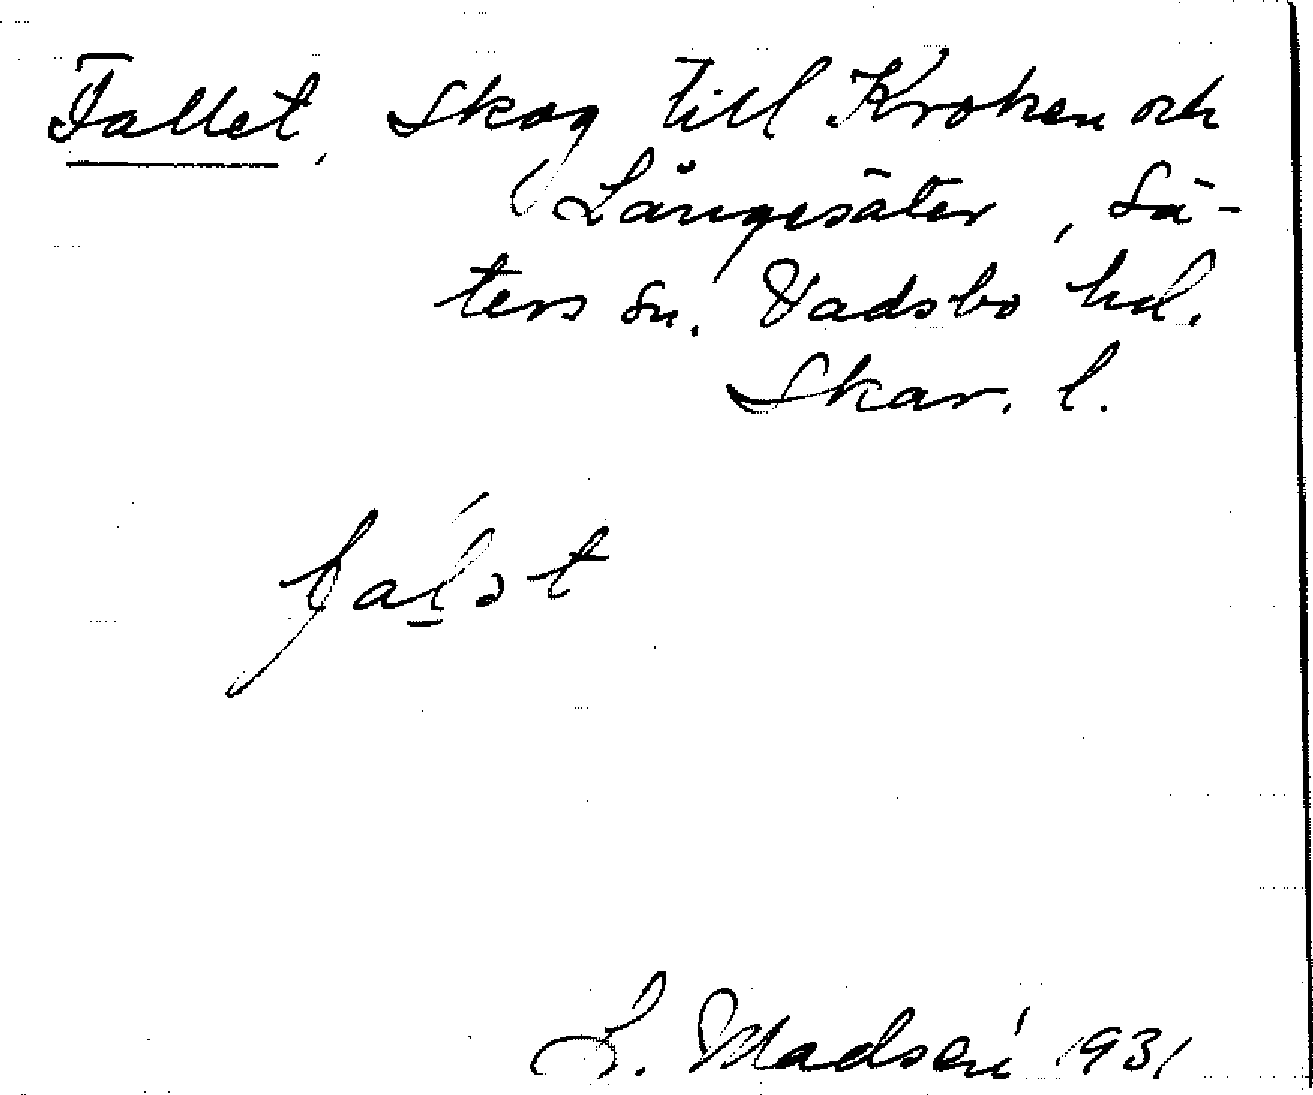 Fallet, Skog till Kroken och
Långesäter, Sä-
ters sn. Vadsbo hd.
Skar. l.
faĺ̲ət
L. Madsén 1931